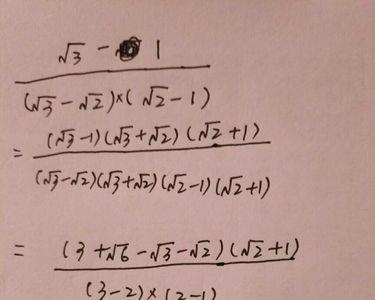 √3 - 1
(√3 - √2)×(√2 - 1)
= (√3 - 1)(√3 + √2)(√2 + 1)
(√3 - √2)(√3 + √2)(√2 - 1)(√2 + 1)
= (3 + √6 - √3 - √2)(√2 + 1)
(3 - 2)×(2 - 1)